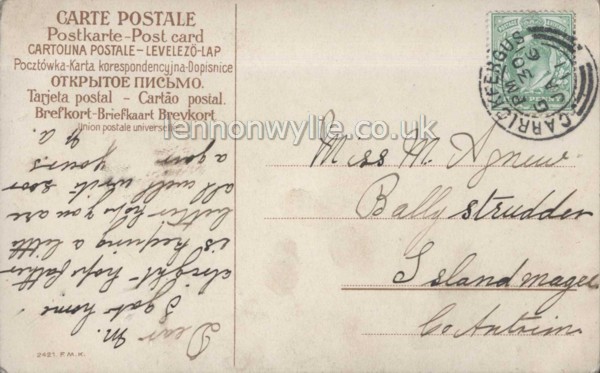 CARTE POSTALE
Postkarte-Post card
CARTOLINA POSTALE-LEVELEZŐ-LAP
Pocztówka-Karta korespondencyjna-Dopisnice
ОТКРЫТОЕ ПИСЬМО.
Tarjeta postal - Cartão postal.
Brefkort-Briefkaart Brevkort
(Union postale universelle)
lennonwylie.co.uk
CARRICKFERGUS
6 30 PM
Miss M. Agnew
Ballystrudder
Islandmagee
Co Antrim
Dear M.
I got home
alright hope father
is keeping a little
better hope you are
all well write soon
again yours
2421. F.M.K.